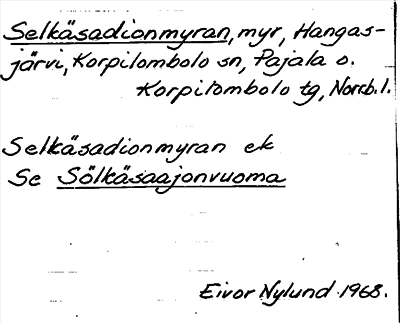 Selkäsadionmyran, myr, Hangas-
järvi, Korpilombolo sn, Pajala o.
Korpilombolo tg, Norrb. l.
Selkäsadionmyran ek
Se Sölkäsaajonvuoma
Eivor Nylund 1968.